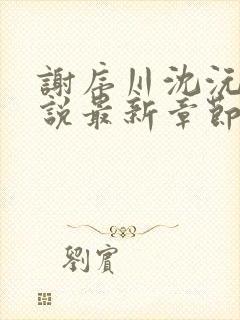 謝辰川沈沅
說最新章節
劉賓